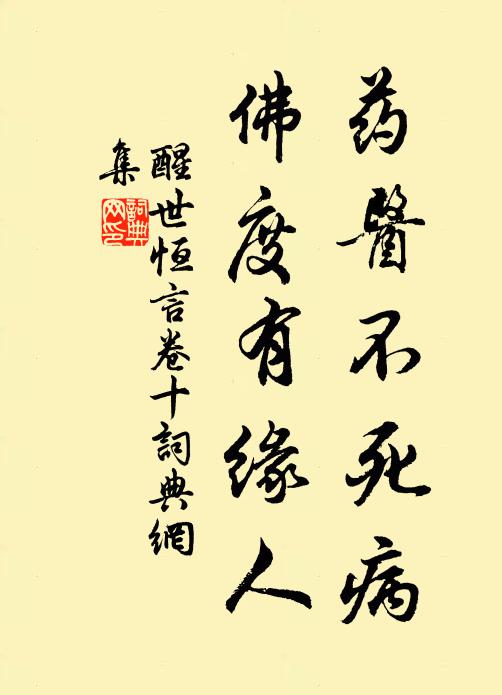 药醫不死病
佛度有缘人
醒世恒言卷十詞典網
集
詞典網印